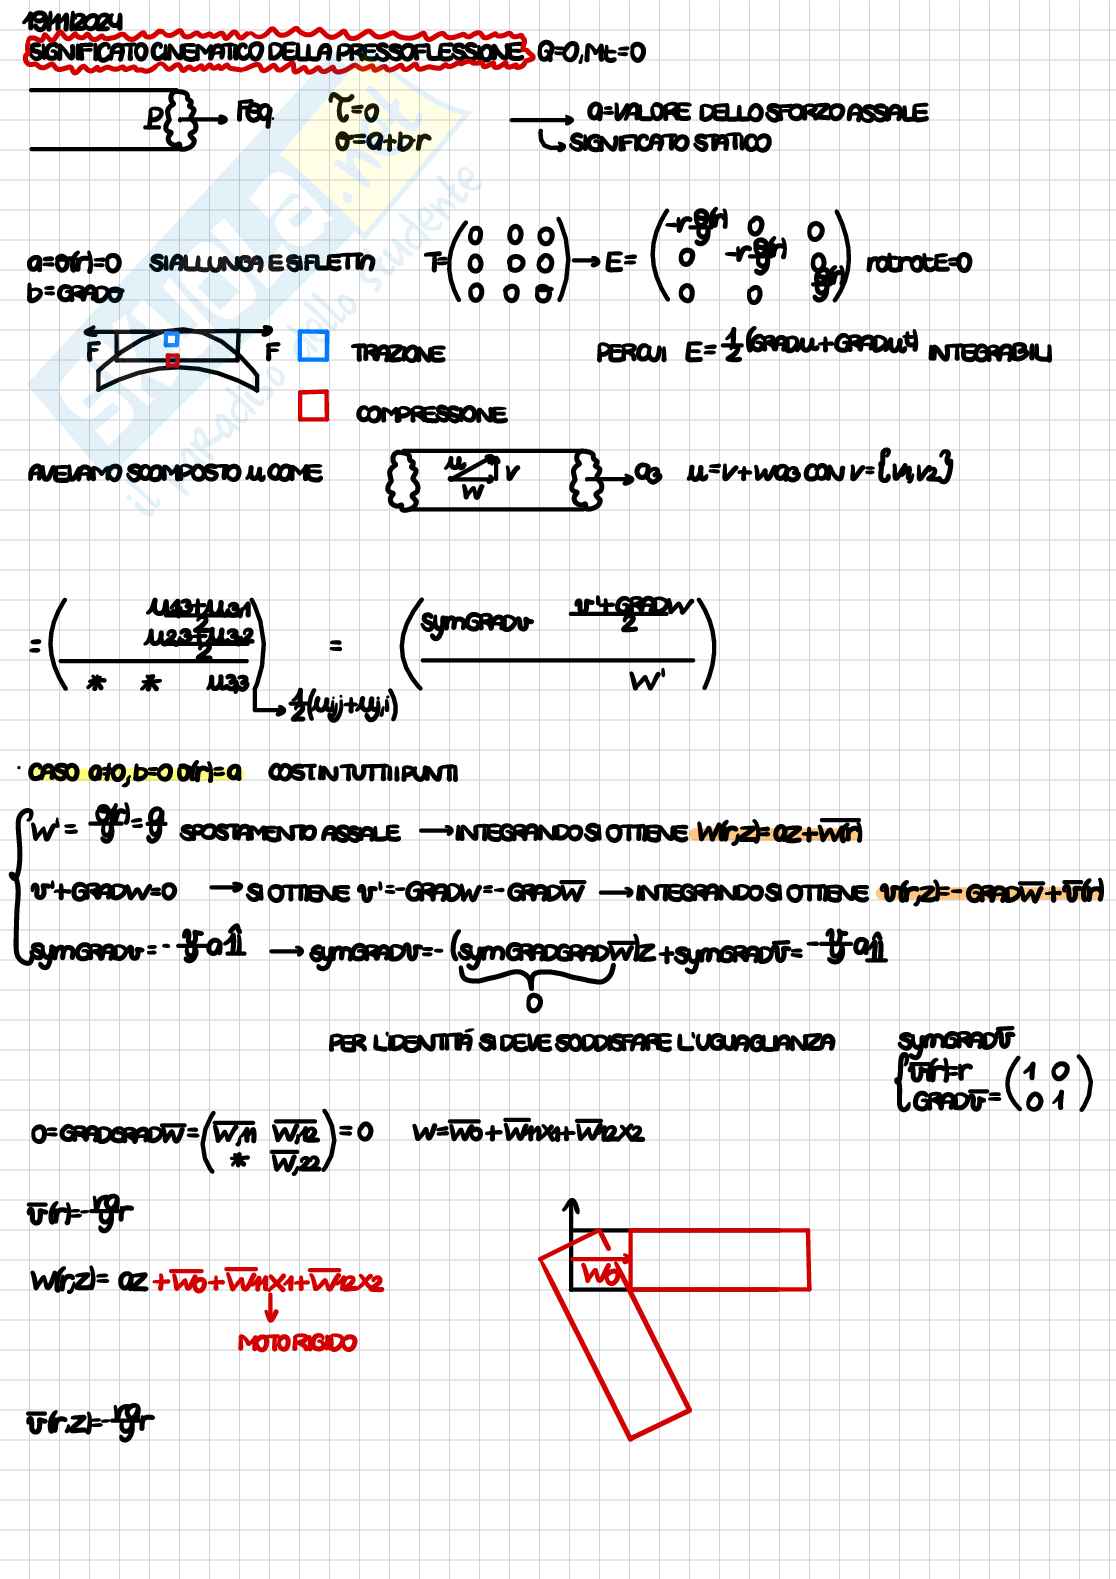 19/11/2024
SIGNIFICATO CINEMATICO DELLA PRESSOFLESSIONE Q=0, Mt=0
P → Feq τ=0 → a=VALORE DELLO SFORZO ASSALE
σ=a+b·r ↳ SIGNIFICATO STATICO
a=σ(r)=0 SI ALLUNGA E SI FLETTA T=(0 0 0 / 0 0 0 / 0 0 σ) → E= (-r σ(r)/y 0 0 / 0 -r σ(r)/y 0 / 0 0 σ(r)/y) rotrotE=0
b=GRADσ
F F TRAZIONE PER CUI E=1/2(GRADu+GRADu^t) INTEGRABILI
COMPRESSIONE
AVEVAMO SCOMPOSTO u COME u v w → a3 u=v+wa3 CON v={v1,v2}
= (u1,3+u3,1/2 u2,3+u3,2/2 * * u3,3) = (symGRADv v'+GRADw/2 w')
→ 1/2(ui,j+uj,i)
CASO a≠0, b=0 σ(r)=a COST IN TUTTI I PUNTI
w'= σ(r)/y = a/y SPOSTAMENTO ASSALE → INTEGRANDO SI OTTIENE w(r,z)=az+w̅(r)
v'+GRADw=0 → SI OTTIENE v'=-GRADw=-GRADw̅ → INTEGRANDO SI OTTIENE v(r,z)=-GRADw̅+v̅(r)
symGRADv=-v/y a1 → symGRADv=-(symGRADGRADw̅)z+symGRADv̅=-v/y a1
0
PER L'IDENTITÁ SI DEVE SODDISFARE L'UGUAGLIANZA symGRADv̅
{v̅(r)=r
GRADv̅=(1 0 / 0 1)
0=GRADGRADw̅=(w̅,11 w̅,12 / * w̅,22)=0 w=w̅0+w̅11x1+w̅12x2
v̅(r)=-ra/y r
w0
w(r,z)= az+w̅0+w̅11x1+w̅12x2
MOTO RIGIDO
v̅(r,z)=-ra/y r
SKUOLA.net
il paradiso dello studente